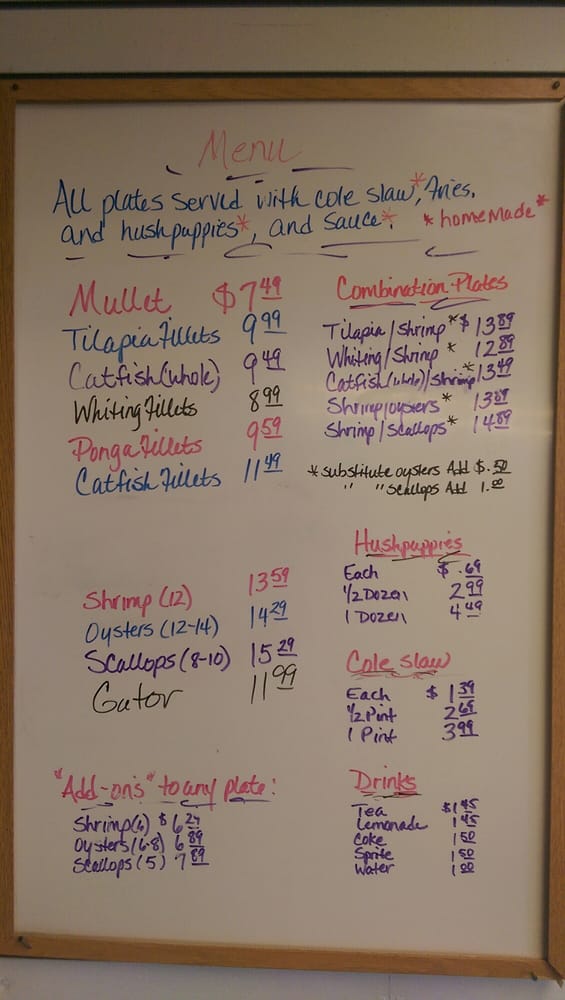 Menu
All plates served with cole slaw*, fries,
and hushpuppies*, and sauce*. *homemade*
Mullet $7.49
Tilapia Fillets 9.99
Catfish (whole) 9.49
Whiting Fillets 8.99
Ponga Fillets 9.59
Catfish Fillets 11.49
Shrimp (12) 13.59
Oysters (12-14) 14.29
Scallops (8-10) 15.29
Gator 11.99
"Add-on's" to any plate:
Shrimp(6) $6.29
Oysters (6-8) 6.89
Scallops (5) 7.89
Combination Plates
Tilapia/Shrimp* $13.89
Whiting/Shrimp* 12.89
Catfish(whole)/Shrimp* 13.49
Shrimp/oysters* 13.89
Shrimp/Scallops* 14.89
*substitute oysters Add $.50
" " Scallops Add 1.00
Hushpuppies
Each $.69
1/2 Dozen 2.99
1 Dozen 4.49
Cole slaw
Each $1.39
1/2 Pint 2.69
1 Pint 3.99
Drinks
Tea $1.45
Lemonade 1.45
Coke 1.50
Sprite 1.50
Water 1.00